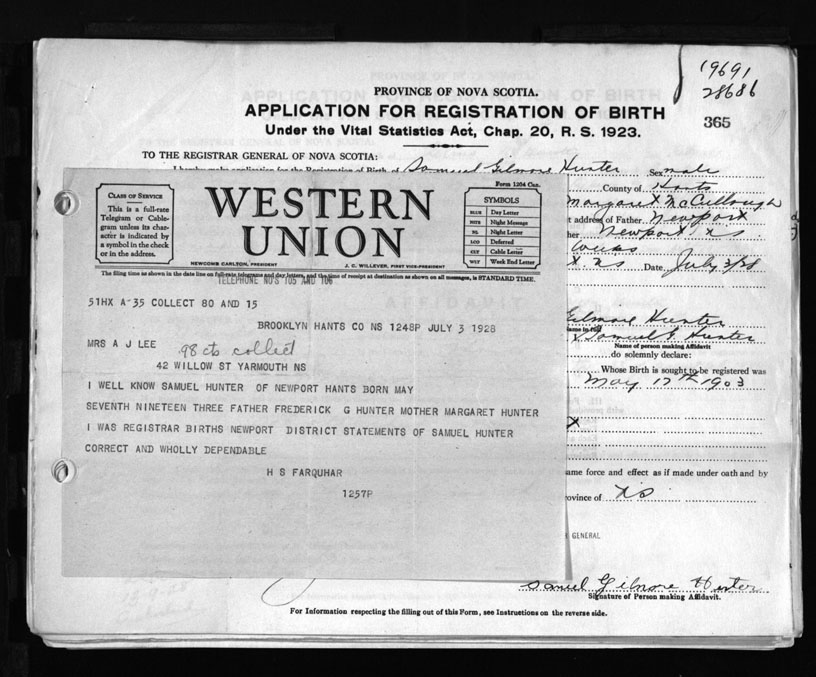 19691
28686
365
PROVINCE OF NOVA SCOTIA.
APPLICATION FOR REGISTRATION OF BIRTH
Under the Vital Statistics Act, Chap. 20, R. S. 1923.
TO THE REGISTRAR GENERAL OF NOVA SCOTIA:
I hereby make application for the Registration of Birth of Samuel Gilmore Hunter Sex male
County of Hants
Margaret McCullough
t address of Father Newport
her Newport N S
Date July 3/28
Form 1204 Can.
CLASS OF SERVICE
This is a full-rate
Telegram or Cable-
gram unless its char-
acter is indicated by
a symbol in the check
or in the address.
WESTERN
UNION
NEWCOMB CARLTON, PRESIDENT
J. C. WILLEVER, FIRST VICE-PRESIDENT
SYMBOLS
BLUE Day Letter
NITE Night Message
NL Night Letter
LCO Deferred
CLT Cable Letter
WLT Week End Letter
The filing time as shown in the date line on full-rate telegrams and day letters, and the time of receipt at destination as shown on all messages, is STANDARD TIME.
TELEPHONE NO'S 105 AND 106
51HX A-35 COLLECT 80 AND 15
BROOKLYN HANTS CO NS 1248P JULY 3 1928
MRS A J LEE
98 cts collect
42 WILLOW ST YARMOUTH NS
I WELL KNOW SAMUEL HUNTER OF NEWPORT HANTS BORN MAY
SEVENTH NINETEEN THREE FATHER FREDERICK G HUNTER MOTHER MARGARET HUNTER
I WAS REGISTRAR BIRTHS NEWPORT DISTRICT STATEMENTS OF SAMUEL HUNTER
CORRECT AND WHOLLY DEPENDABLE
H S FARQUHAR
1257P
Gilmore Hunter
name in full
Samuel G Hunter
Name of person making Affidavit
do solemnly declare:
Whose Birth is sought to be registered was
May 17th 1903
X
ame force and effect as if made under oath and by
rovince of N S
GENERAL
Samuel Gilmore Hunter
Signature of Person making Affidavit.
For Information respecting the filling out of this Form, see Instructions on the reverse side.